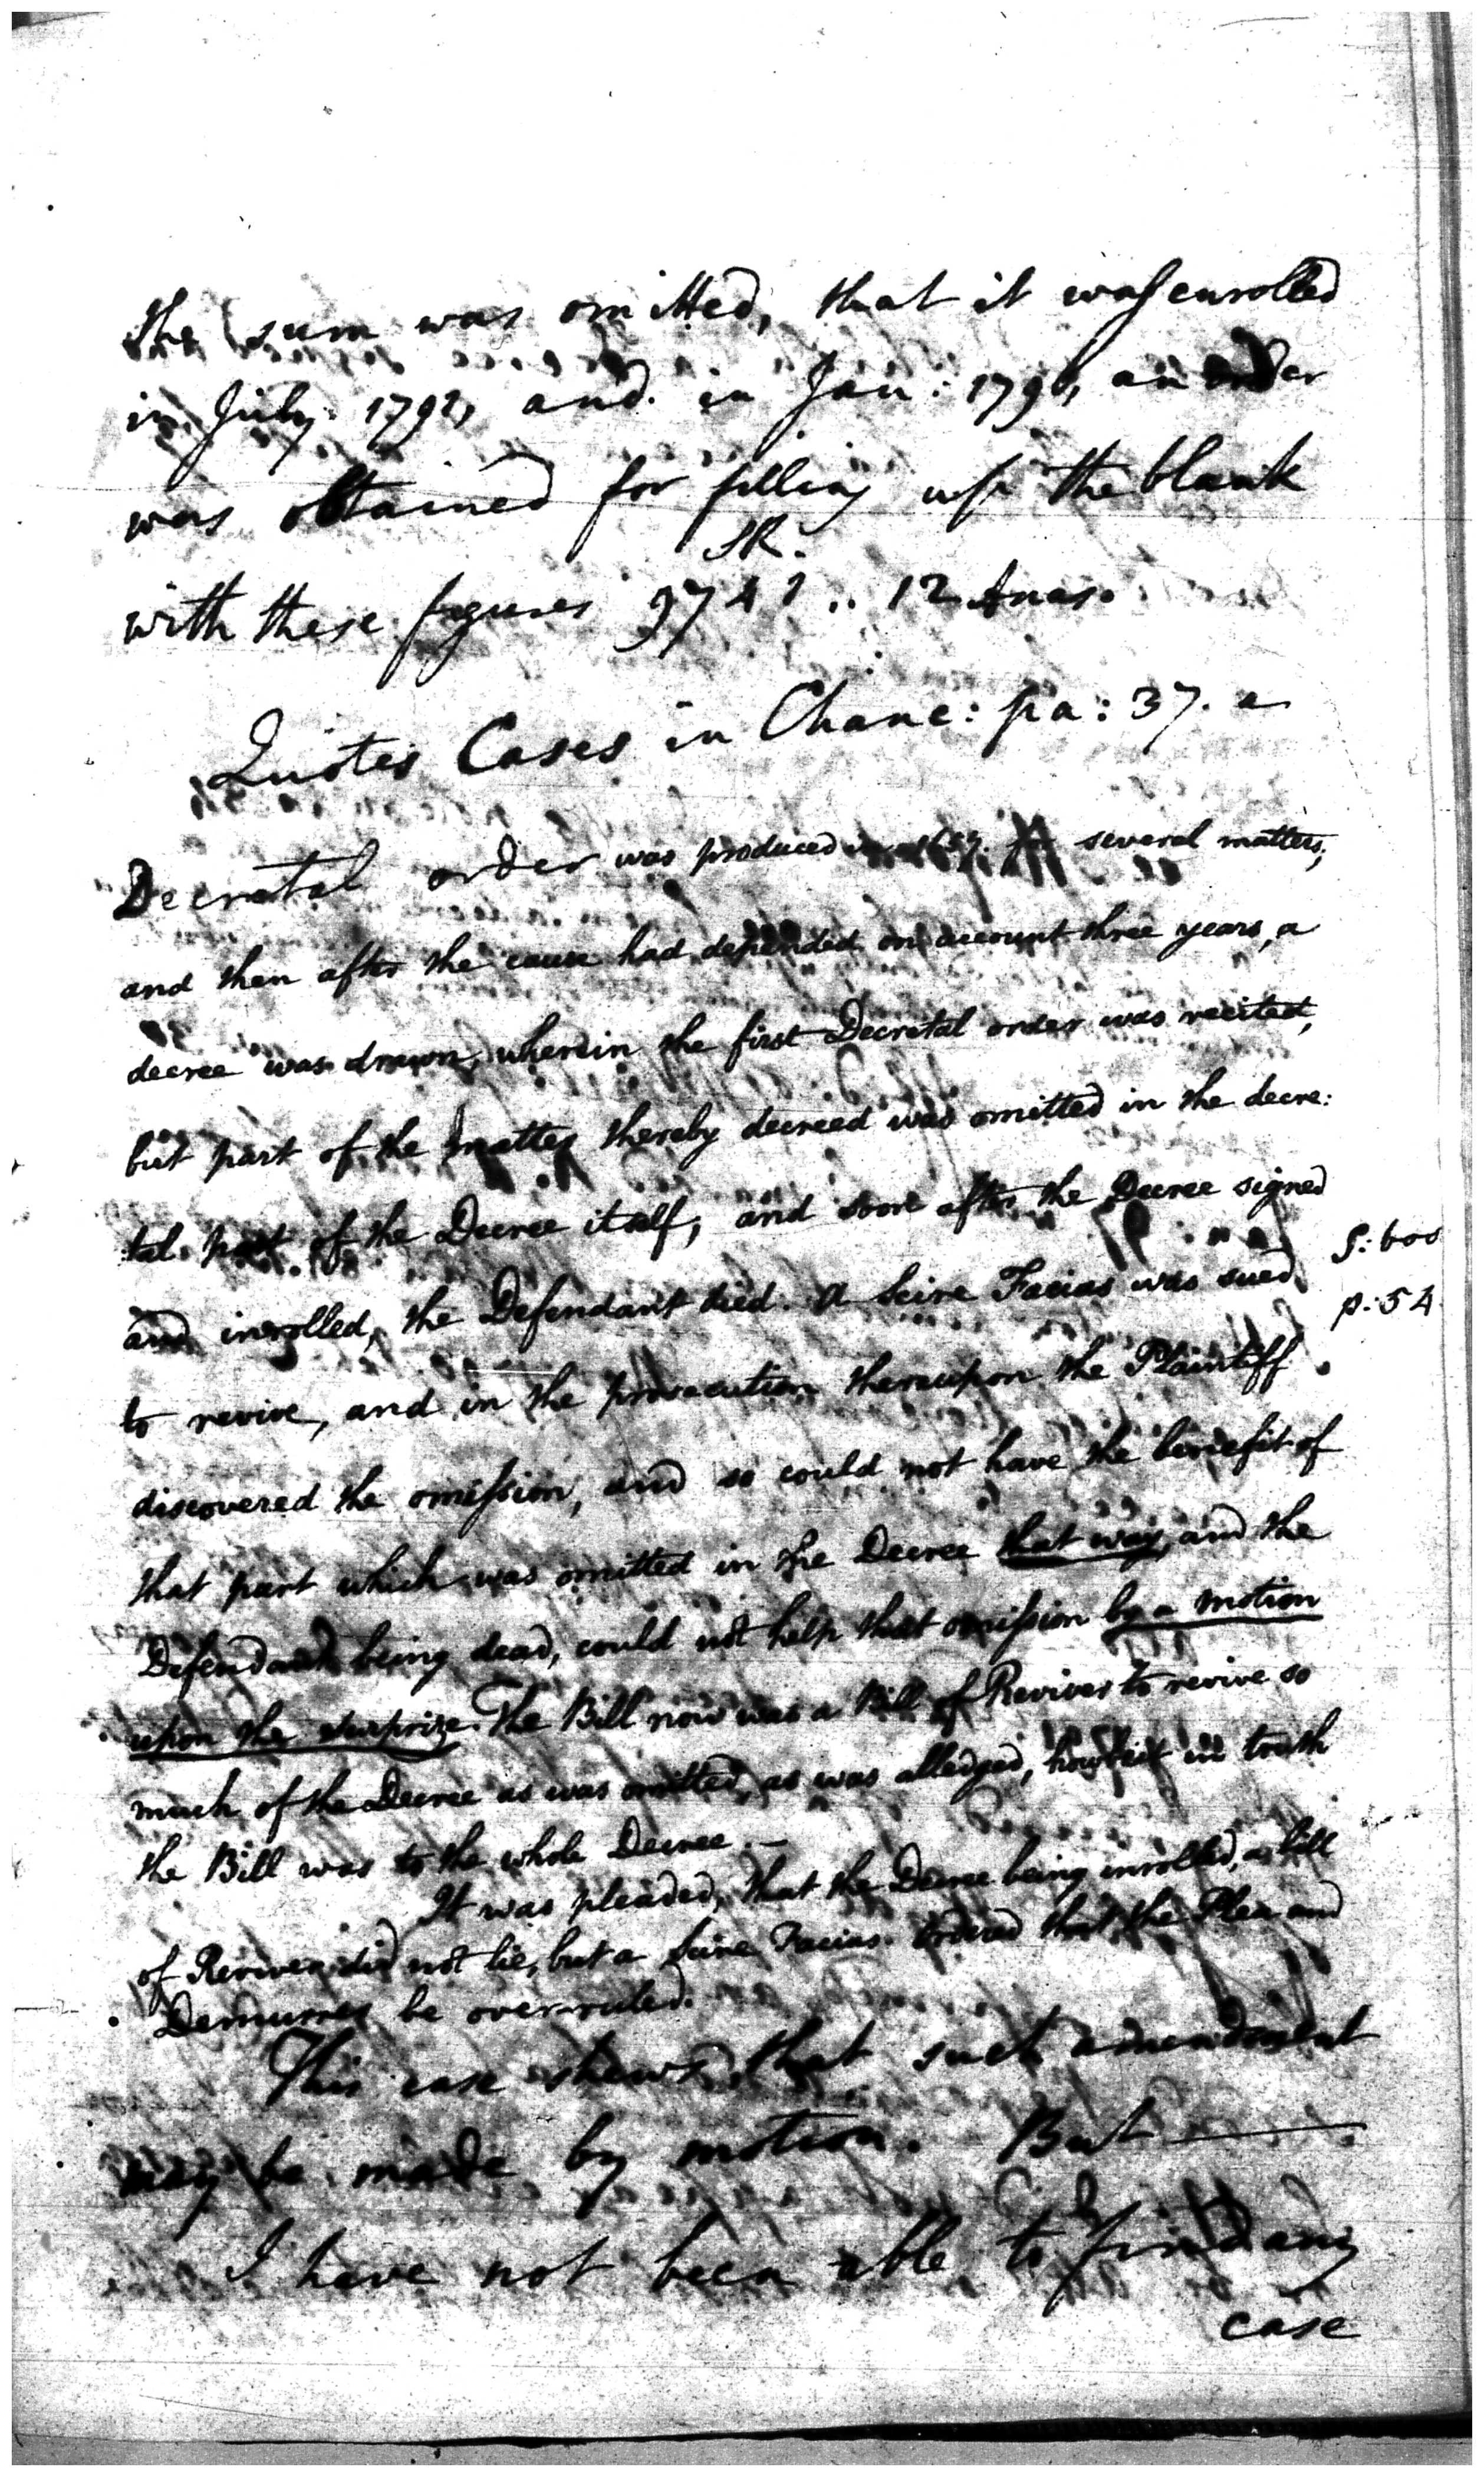 the sum was omitted, that it was enrolled
in July 1792, and in Jan: 1796, an order
was obtained for filling up the blank
SR.
with these figures 9741 .. 12 Anas.
Quotes Cases in Chanc: pa: 37. a
Decretal order was produced several matters,
and then after the cause had depended on account three years, a
decree was drawn, wherein the first Decretal order was recited,
but part of the matter thereby decreed was omitted in the decre:
:tal part of the Decree itself, and soon after the Decree signed
S: 600
and inrolled, the Defendant died. A Scire Facias was sued
p: 54
to revive, and in the prosecution thereupon the Plaintiff
discovered the omission, and so could not have the benefit of
that part which was omitted in the Decree that way, and the
Defendant being dead, could not help that omission by a motion
upon the surprize. The Bill now was a Bill of Reviver to revive so
much of the Decree as was omitted, as was alledged, howbeit in truth
the Bill was to the whole Decree. —
It was pleaded, that the Decree being inrolled, a bill
of Reviver did not lie, but a Scire Facias. Ordered that the Plea and
Demurrer be over-ruled.
This case shews that such amendment
may be made by motion. But —
I have not been able to find any
case